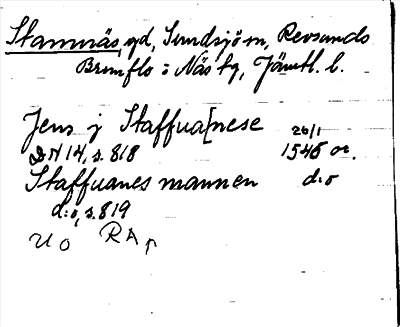 Stamnäs, gd, Sundsjö sn, Revsunds
Brunflo o Näs tg, Jämtl. l.
Jens j Staffua[nese 26/1
DN 14, s. 818 1545 or.
Staffuanes mannen d:o
d:o, s. 819
U O RA